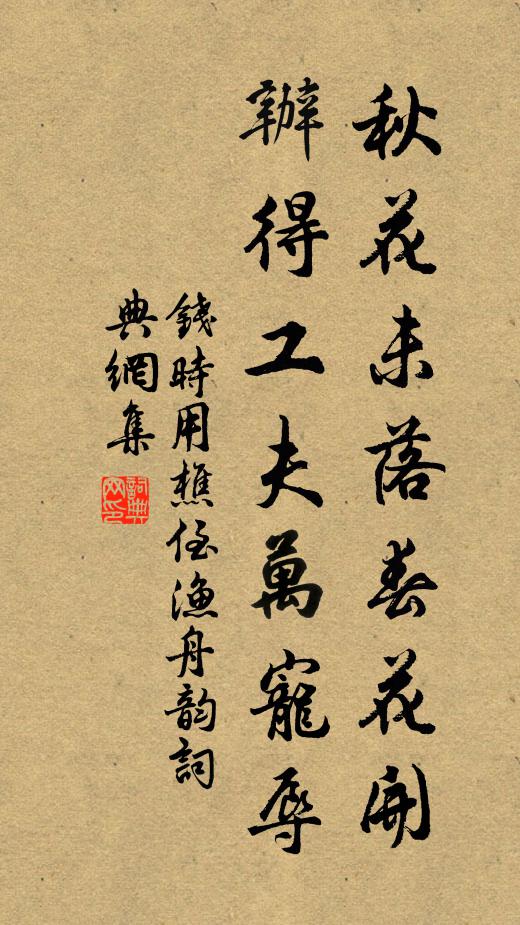 秋花未落春花開
辦得工夫萬寵辱
錢時用樵侄漁舟韵詞
典網集
詞典網印